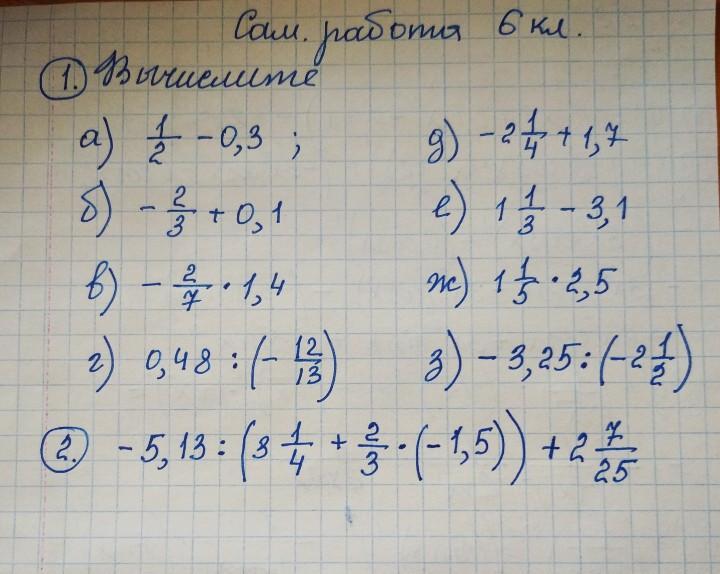 Сам. работа 6 кл.
1. Вычислите
а) 1/2 - 0,3 ;
д) -2 1/4 + 1,7
б) - 2/3 + 0,1
е) 1 1/3 - 3,1
в) - 2/7 · 1,4
ж) 1 1/5 · 2,5
г) 0,48 : (- 12/13)
з) - 3,25 : (-2 1/2)
2. - 5,13 : (3 1/4 + 2/3 · (-1,5)) + 2 7/25